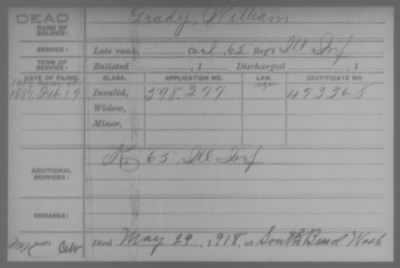 DEAD
NAME OF SOLDIER: Grady, William
SERVICE: Late rank, Co. I, 65 Reg't Ill Inf
TERM OF SERVICE: Enlisted , 1 Discharged , 1
DATE OF FILING. CLASS. APPLICATION NO. LAW. CERTIFICATE NO.
Feb 19 Invalid, 398,277 473365
Widow,
Minor,
ADDITIONAL SERVICES: K, 65 Ill Inf
REMARKS:
Died May 29, 1918, at South Bend Wash